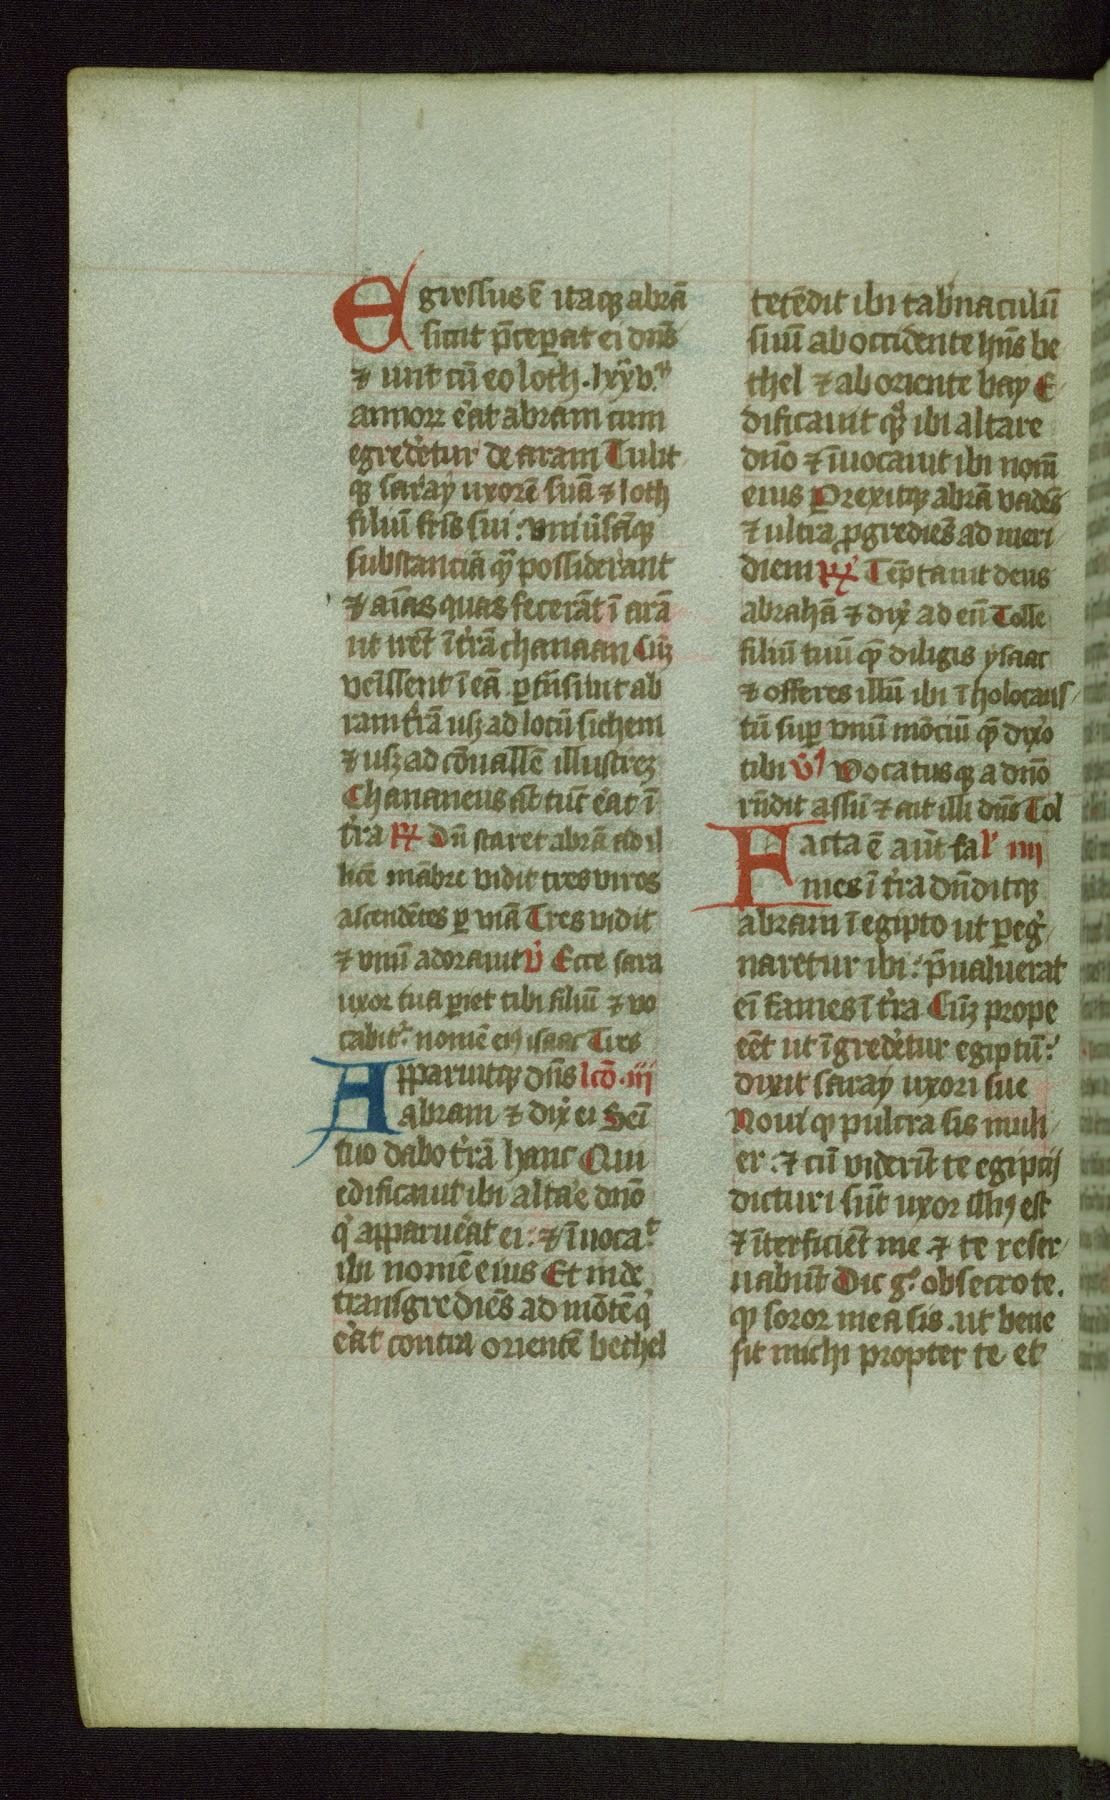 Egressus ē itaqꝫ abrā
sicut p̄ceꝑat ei dn̄s
⁊ iuit cū eo loth. lxxv.
annoꝝ eat abram cum
egrederetur de aram Tulit
qꝫ saray uxorē suā ⁊ loth
filiū fr̄is sui: vniūsāqꝫ
substanciā qꝫ possiderant
⁊ aīas quas fecerāt ī arā
ut irēt ī tr̄ā chanaan Cūqꝫ
venissent ī eā ꝑtn̄siuit ab
ram tr̄ā usqꝫ ad locū sichem
⁊ usqꝫ ad cōuallē illustrē
Chananeus āt tūc eāt ī
tr̄ra ℟ Dū staret abrā ad il
licē mābre vidit tres viros
ascendētes ꝑ viā Tres vidit
⁊ vnū adorauit v̄ Ecce sara
uxor tua ꝑiet tibi filiū ⁊ vo
cabitᷣ nomē eiꝰ isaac Tres
Apparuitqꝫ dn̄s lcō. iij
abram ⁊ dix̄ ei Semī
tuo dabo tr̄ā hanc Qui
edificauit ibi altāe dn̄o
q̇ apparuēat ei: ⁊ īuocaᵗ
ibi nomē eius Et inde
transgrediēs ad mōtē q̇
eāt contra orientē bethel
tetēdit ibi tab̄naculū
suū ab occidente hn̄s be
thel ⁊ ab oriente hay E
dificauit qꝫ ibi altare
dn̄o ⁊ īuocauit ibi nom̄
eius Prexitqꝫ abrā vadēs
⁊ ultra ꝓgrediēs ad meri
diem ℟ Tēptauit deus
abrahā ⁊ dix̄ ad eū Tolle
filiū tuū quē diligis ysaac
⁊ offeres illū ibi ī holocaus
tū suꝑ vnū mōciū quē dixo
tibi v̄ Vocatus qꝫ a dn̄o
rn̄dit assū ⁊ ait illi dn̄s Tol
Facta ē aūt fa l̄ iiij
mes ī tr̄a dn̄ditqꝫ
abram ī egipto ut ꝑeg̓
naretur ibi: p̄ualuerat
eī fames ī tr̄a Cūqꝫ prope
eēt ut īgrederetur egiptū:
dixit saray uxori sue
Noui ꝙ pulcra sis muli
er: ⁊ cū viderīt te egiptij
dicturi sūt uxor illiꝰ est
⁊ īterficiēt me ⁊ te reser
uabūt Dic g̊ obsecro te.
ꝙ soror mea sis. ut bene
sit michi propter te et